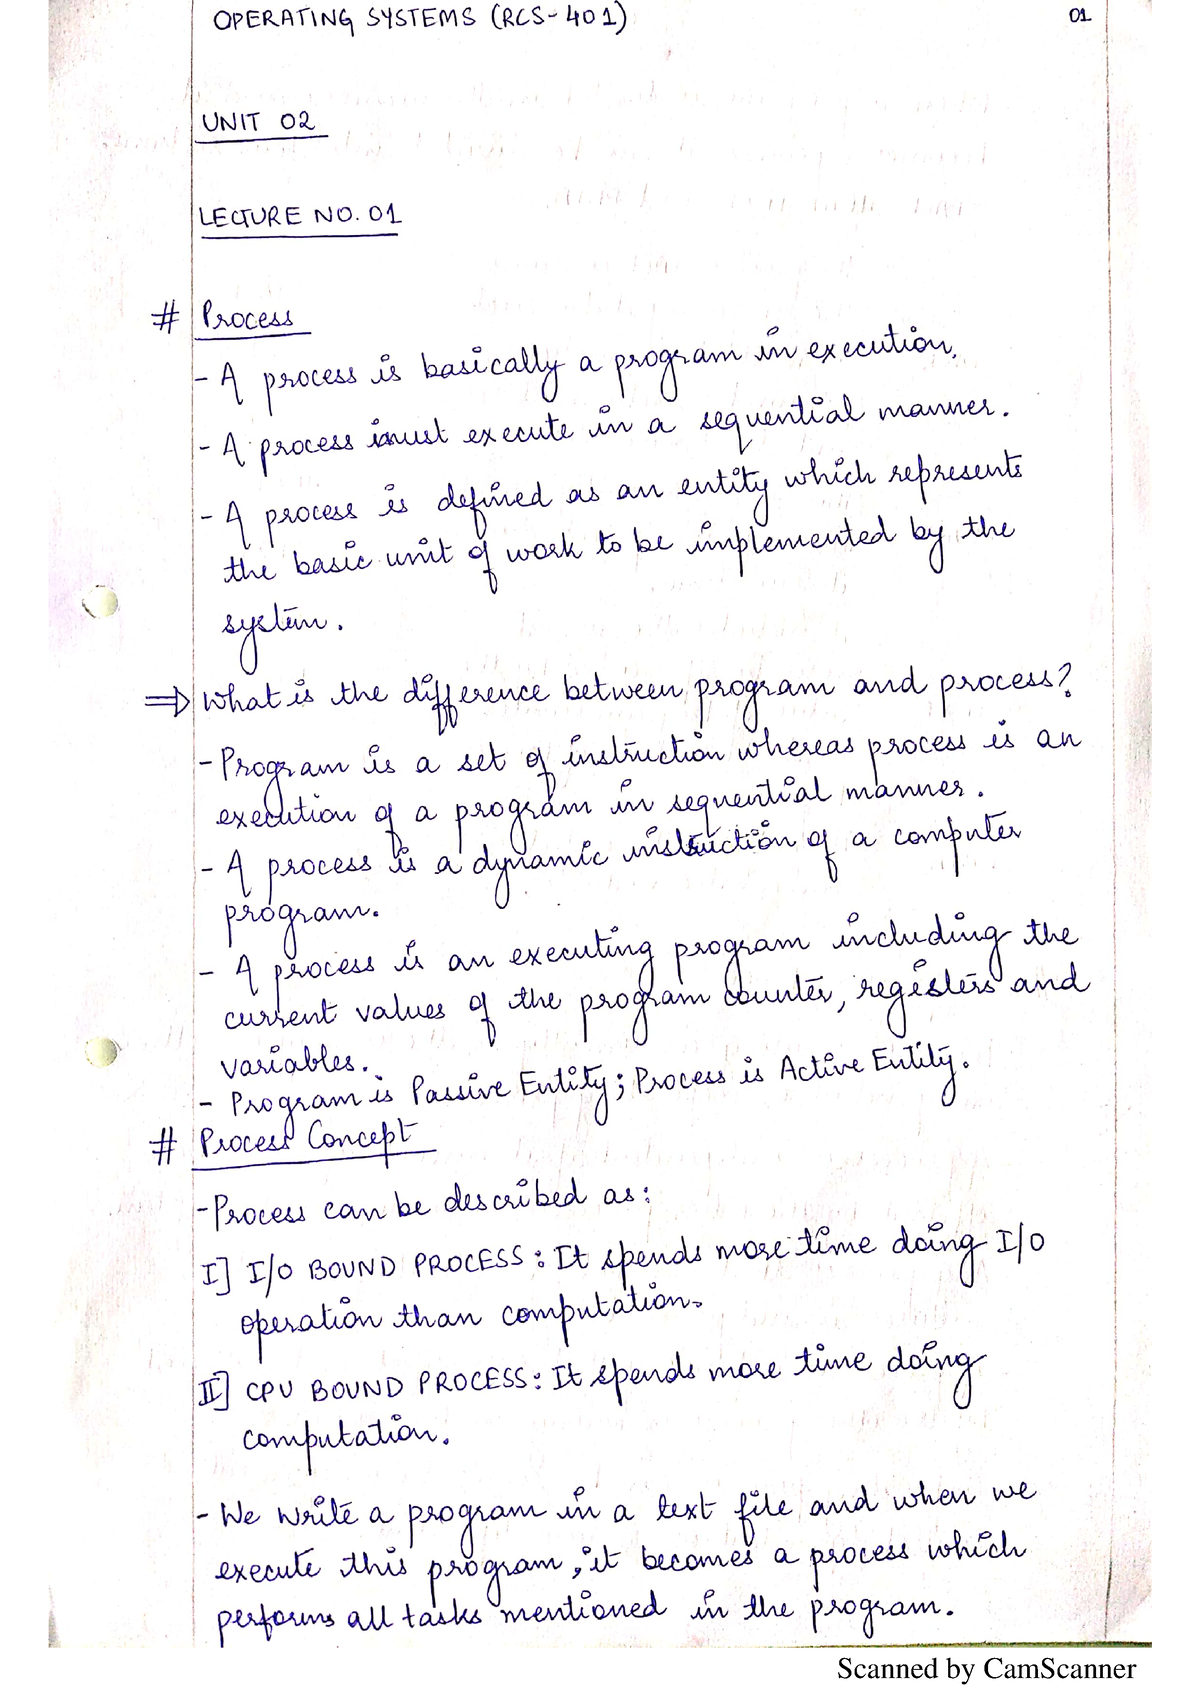 OPERATING SYSTEMS (RCS-401)
01
UNIT 02
LECTURE NO. 01
# Process
- A process is basically a program in execution.
- A process must execute in a sequential manner.
- A process is defined as an entity which represents
the basic unit of work to be implemented by the
system.
⇒ What is the difference between program and process?
- Program is a set of instruction whereas process is an
execution of a program in sequential manner.
- A process is a dynamic instruction of a computer
program.
- A process is an executing program including the
current values of the program counter, registers and
variables.
- Program is Passive Entity; Process is Active Entity.
# Process Concept
- Process can be described as:
I] I/O BOUND PROCESS: It spends more time doing I/O
operation than computation.
II] CPU BOUND PROCESS: It spends more time doing
computation.
- We write a program in a text file and when we
execute this program, it becomes a process which
performs all tasks mentioned in the program.
Scanned by CamScanner